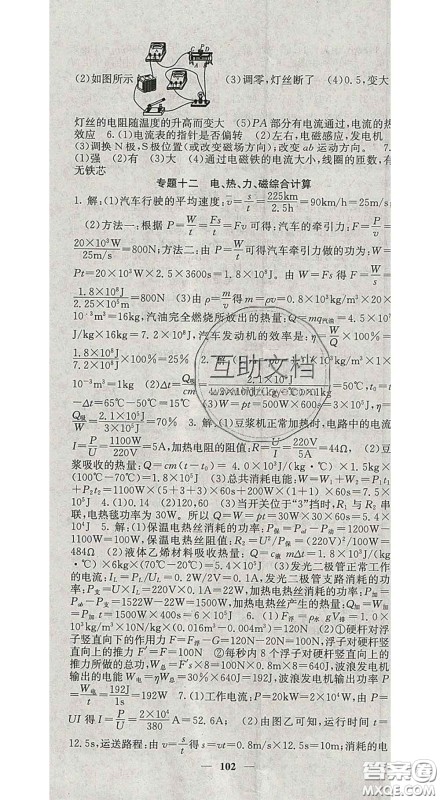 (2)如图所示 (3)调零,灯丝断了 (4)0.5,变大
灯丝的电阻随温度的升高而变大 (5)PA部分有电流通过,电流的热
效应 6.(1)电流表的指针是否偏转 (2)左右,电磁感应,发电机
(3)调换N极,S极位置(或改变磁场方向);改变ab运动方向。 7.
(1)强 (2)有 (3)大 (4)通过电磁铁的电流大小,线圈的匝数,有
无铁芯
专题十二 电、热、力、磁综合计算
1.解:(1)汽车行驶的平均速度:v=s/t=225km/2.5h=90km/h=25m/s;
(2)方法一:根据P=W/t=Fs/t=Fv可得:汽车的牵引力:F=P/v=
20×10³W/25m/s=800N;方法二:由P=W/t可得汽车牵引力做的功为:W=
Pt=20×10³W×2.5×3600s=1.8×10⁸J。由W=Fs得F=W/s=
1.8×10⁸J/2.25×10⁵m=800N (3)由ρ=m/V得m=ρV=0.8×10³kg/m³×20×
10⁻³m³=16kg,汽油完全燃烧所放出的热量:Q=mq汽油=4.5×
J/kg×16kg=7.2×10⁸J,汽车发动机的效率是:η=W/Q×100%=
1.8×10⁸J/7.2×10⁸J×100%=25% 2.解:(1)
1⁻³m³=1kg (2)Δt=
互助文档
-Δt=65℃-50℃=15℃ (3)W=Pt=500W×600s=3×10⁵J,η=
Q吸/W=2.1×10⁵J/3×10⁵J=70% 3.解:(1)豆浆机正常加热时,电路中的电流
I=P/U=1100W/220V=5A,加热电阻的阻值:R=U/I=220V/5A=44Ω, (2)豆
浆吸收的热量:Q=cm(t-t₀)=4.0×10³J/(kg·℃)×1kg×
(100℃-70℃)=1.8×10⁵J (3)总共消耗电能:W=W₁+W₂=P₁t₁
+P₂t₂=1100W×(5+3+3)×60s+200W×(1+1+1)×60s=7.62×
10⁵J 4.(1)0.14 (2)120,60 (3)当开关位于“3”挡时,R₁与R₂串
联,电热毯功率为30W。所以Q=W=Pt=30W×30×60s=5.4×
10⁴J 5.解:(1)保温电热丝消耗的功率:P保=P总-P加=1200W-
1100W=100W,保温电热丝的电阻:R保=U²/P保=(220V)²/100W=
484Ω (2)液体乙烯材料吸收热量:Q吸=c液mΔt=1.8×10³J/
(kg·℃)×6kg×(70℃-20℃)=5.4×10⁵J (3)发光二极管正常工作
的电流:I_L=P_L/U_L=0.2W/2V=0.1A。发光二极管支路消耗的功
率:P支=I_L×U=220V×0.1A=22W,加热电热丝消耗的功率:P加=
P总-P支=1522W-22W=1500W,加热电热丝产生的热量:Q加=W加
=P加t=1500W×400s=6×10⁵J 6.(1)F浮=ρ水gV排=1.0×10³
kg/m³×10N/kg×(0.016m³-0.004m³)=120N (2)①硬杆对浮
子竖直向下的作用力F=F浮-G=120N-20N=100N,浮子对硬杆竖
直向上的推力F′=F=100N ②每秒内8个浮子对硬杆竖直向上的
推力所做的总功:W总=F′s×8=100N×0.8m×8=640J,波浪发电机
输出的电能W电=ηW总=30%×640J=192J,波浪发电机输出功率P
=W电/t=192J/1s=192W 7.(1)工作电流:P=20kW=2×10⁴W,由P=
UI得I=P/U=2×10⁴/380A=52.6A; (2)由图乙可知,运行时间t=
12.5s,运送路程:由v=s/t得s=vt=0.8m/s×12.5s=10m;消耗的电
102
答案圈
MXQE.COM